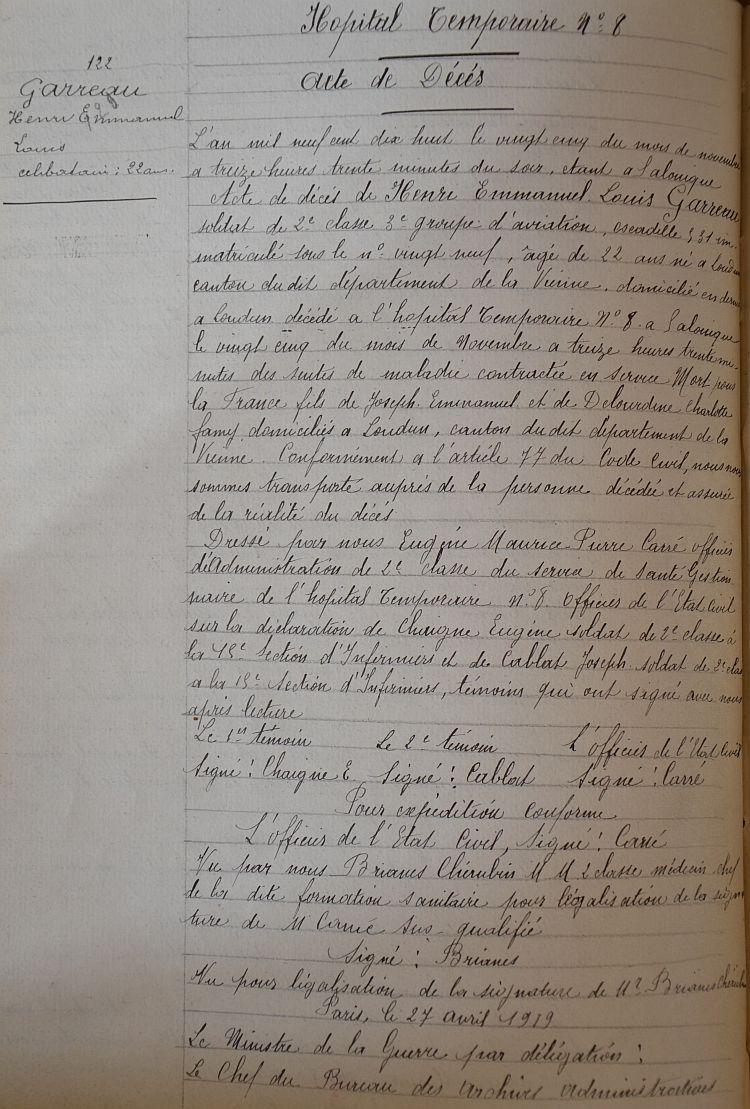 Hopital Temporaire Nº 8
Acte de Décés
122
Garreau
Henri Emmanuel
Louis
celibataire; 22 ans.
L'an mil neuf cent dix huit le vingt cinq du mois de novembre
a treize heures trente minutes du soir, étant a Salonique
Acte de décés de Henri Emmanuel Louis Garreau
soldat de 2e classe 3e groupe d'aviation, escadille 531 im-
matriculé sous le nº vingt neuf, âgé de 22 ans né a Loudun
canton du dit département de la Vienne, domicilié en dernier
a Loudun décédé a l'hopital Temporaire Nº 8. a Salonique
le vingt cinq du mois de Novembre a treize heures trente mi-
nutes des suites de maladie contractée en service Mort pour
la France fils de Joseph Emmanuel et de Delourdine Charlotte
famy domiciliés a Loudun, canton du dit département de la
Vienne. Conformément a l'article 77 du Code Civil, nous nous
sommes transporté auprés de la personne décédée et assurée
de la réalité du décés
Dressé par nous Eugéne Maurice Pierre Carré officier
d'Administration de 2e classe du service de santé Gestion
naire de l'hopital Temporaire nº 8. Officier de l'Etat civil
sur la déclaration de Chaigne Eugéne soldat de 2e classe à
la 15e Section d'Infirmiers et de Cablat Joseph soldat de 2e clas
a la 15e Section d'Infirmiers, témoins qui ont signé avec nous
aprés lecture
Le 1er témoin Le 2e témoin L'officier de l'Etat Civil
Signé: Chaigne E. Signé: Cablat Signé: Carré
Pour expédition conforme
L'officier de l'Etat Civil, Signé: Carré
Vu par nous Brianes Chérubin M M 2 classe médecin chef
de la dite formation sanitaire pour légalisation de la signa
ture de M Carré sus-qualifié
Signé: Brianes
Vu pour légalisation de la signature de Mr Brianes Chérubin
Paris, le 27 avril 1919
Le Ministre de la Guerre par délégation:
Le Chef du Bureau des Archives Administratives